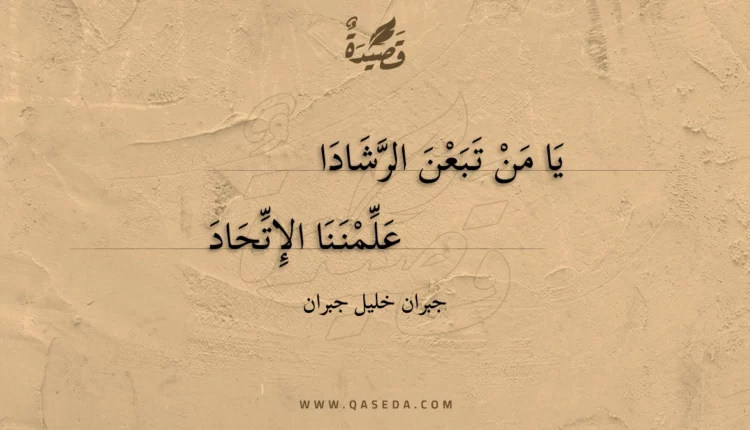 قَصِيدَةٌ
يَا مَنْ تَبَعْنَ الرَّشَادَا
عَلِّمْنَنَا الإِتِّحَادَ
جبران خليل جبران
WWW.QASEDA.COM